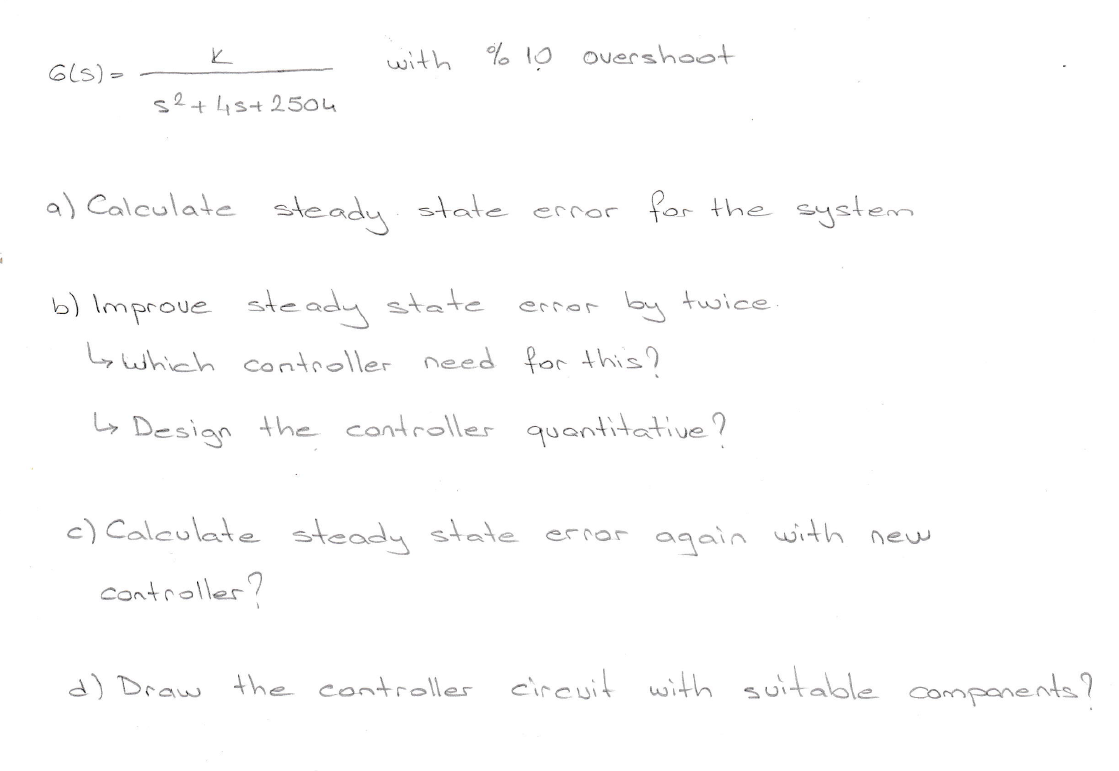 G(s) = K / s² + 4s + 2504 with % 10 overshoot
a) Calculate steady state error for the system
b) Improve steady state error by twice.
↳ Which controller need for this?
↳ Design the controller quantitative?
c) Calculate steady state error again with new
controller?
d) Draw the controller circuit with suitable components?